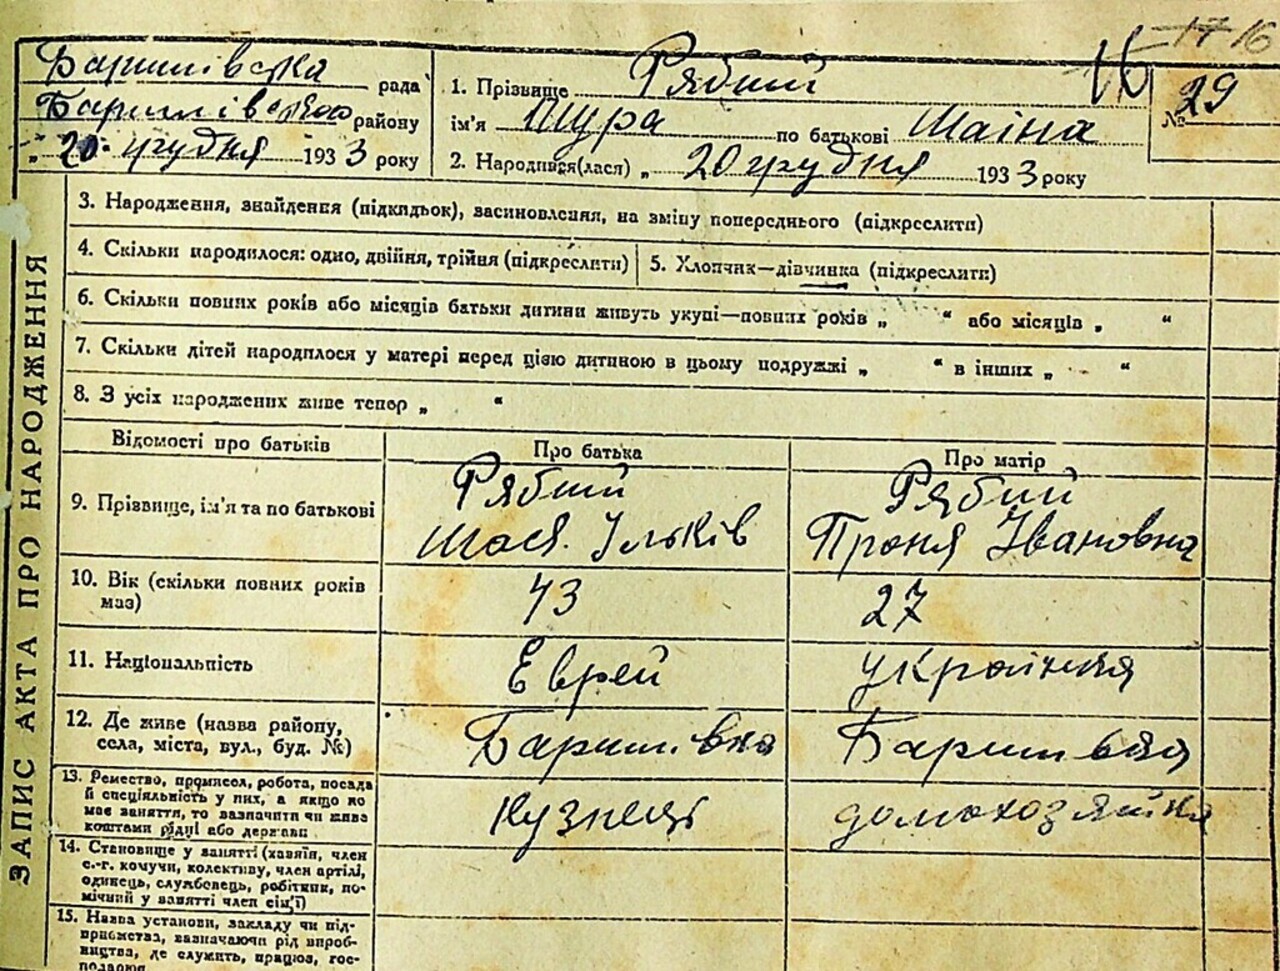 17 16
16
Баришівска рада
Баришівского району
„ 20 грудня 1933 року
1. Прізвище Рябий
ім'я Шура по батькові
2. Народився(лася) „ 20 грудня 1933 року
№ 29
ЗАПИС АКТА ПРО НАРОДЖЕННЯ
3. Народження, знайдення (підкидьок), засиновлення, на зміну попереднього (підкреслити)
4. Скільки народилося: одно, двійня, трійня (підкреслити)
5. Хлопчик—дівчинка (підкреслити)
6. Скільки повних років або місяців батьки дитини живуть укупі—повних років „ “ або місяців „ “
7. Скільки дітей народилося у матері перед цією дитиною в цьому подружжі „ “ в інших „ “
8. З усіх народжених живе тепер „ “
Відомості про батьків
Про батька
Про матір
9. Прізвище, ім'я та по батькові
Рябий
Ільків
Рябий
Проня Івановна
10. Вік (скільки повних років
має)
43
27
11. Національність
Еврей
українка
12. Де живе (назва району,
села, міста, вул., буд. №)
Баришівка
Баришівка
13. Ремество, промисел, робота, посада
й спеціяльність у них, а якщо не
має заняття, то зазначити чи жива
коштами рідні або держави
кузнець
домохозяйка
14. Становище у занятті (хазяїн, член
с.-г. комуни, колективу, член артілі,
одинець, службовець, робітник, по-
мічний у занятті член сім'ї)
15. Назва установи, закладу чи під-
приємства, зазначаючи рід вироб-
ництва, де служить, працює, гос-
подарює